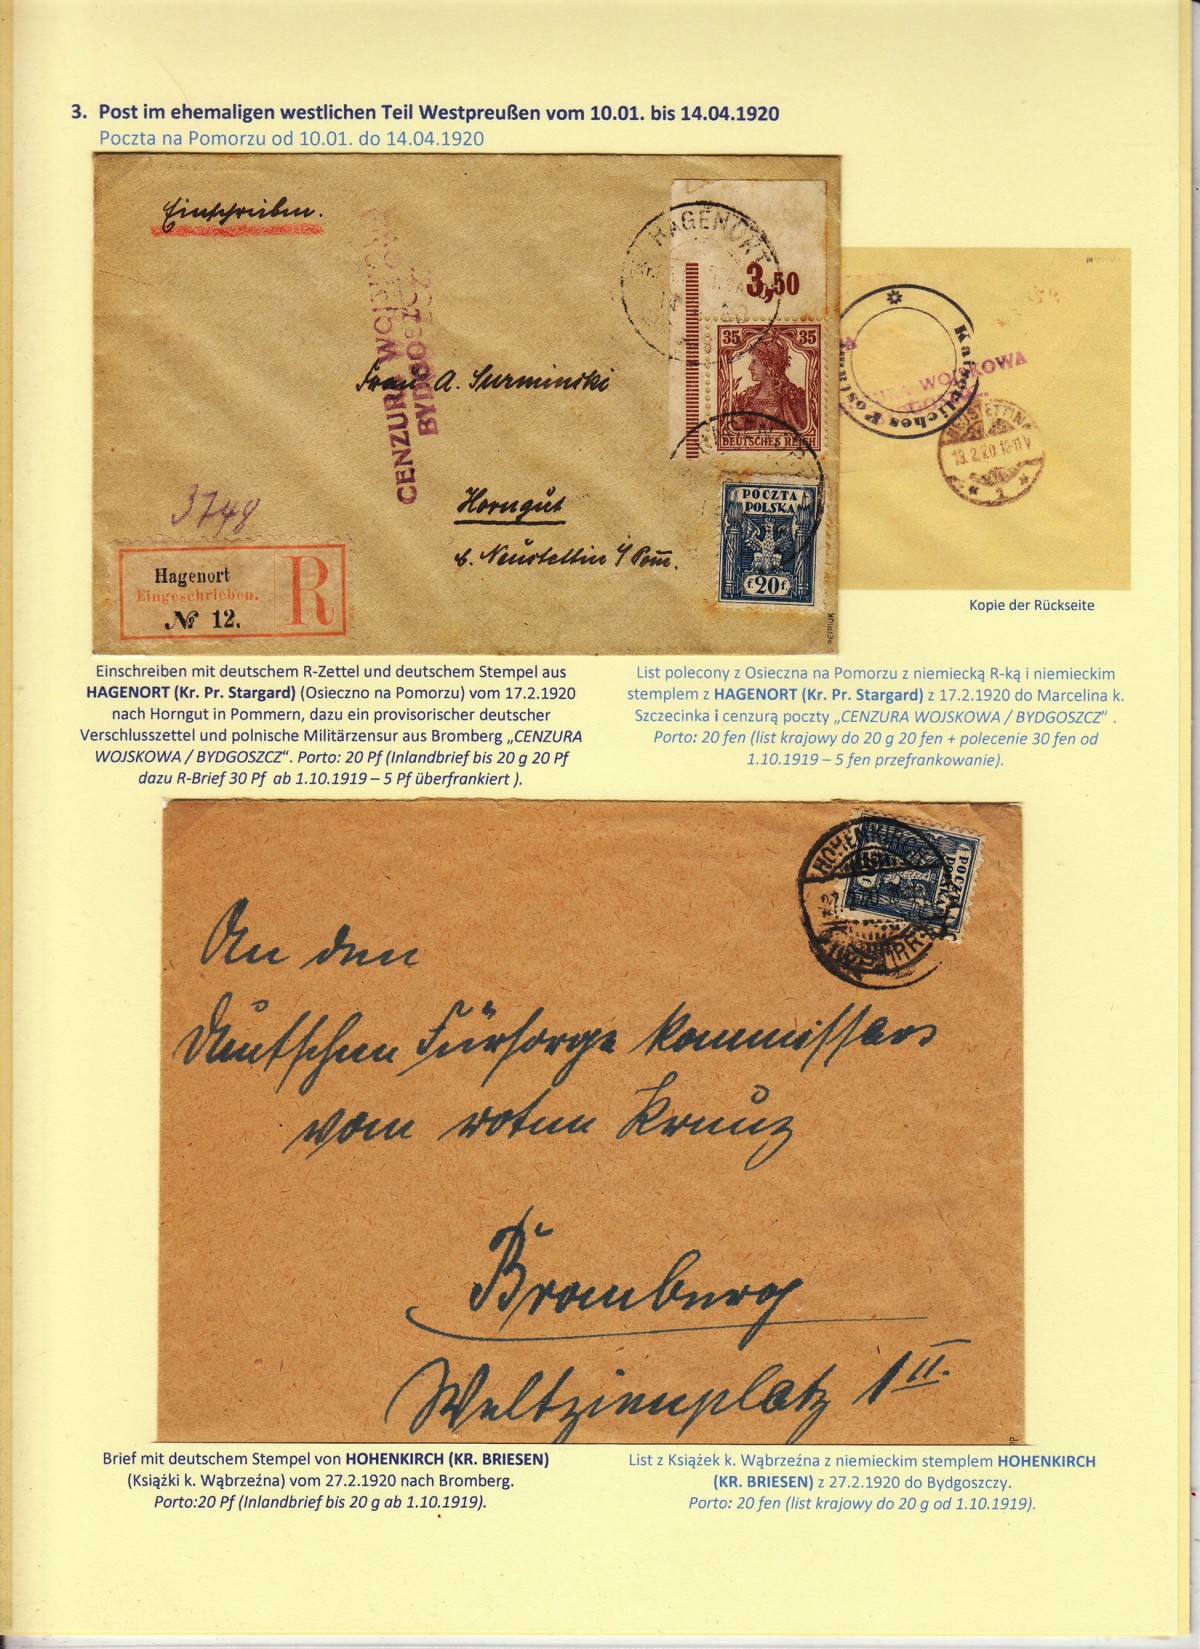 3. Post im ehemaligen westlichen Teil Westpreußen vom 10.01. bis 14.04.1920
Poczta na Pomorzu od 10.01. do 14.04.1920
Einschreiben.
CENZURA WOJSKOWA
BYDGOSZCZ
HAGENORT
3,50
35 35
DEUTSCHES REICH
A. Surminski
Horngut
b. Neustettin i/Pom.
POCZTA
POLSKA
f. 20 f.
3748
Hagenort
Eingeschrieben.
№ 12.
R
Kaiserliches Post
WOJSKOWA
NEUSTETTIN
19.2.20.10-11V
* 1 *
Kopie der Rückseite
Einschreiben mit deutschem R-Zettel und deutschem Stempel aus
HAGENORT (Kr. Pr. Stargard) (Osieczno na Pomorzu) vom 17.2.1920
nach Horngut in Pommern, dazu ein provisorischer deutscher
Verschlusszettel und polnische Militärzensur aus Bromberg „CENZURA
WOJSKOWA / BYDGOSZCZ“. Porto: 20 Pf (Inlandbrief bis 20 g 20 Pf
dazu R-Brief 30 Pf ab 1.10.1919 – 5 Pf überfrankiert ).
List polecony z Osieczna na Pomorzu z niemiecką R-ką i niemieckim
stemplem z HAGENORT (Kr. Pr. Stargard) z 17.2.1920 do Marcelina k.
Szczecinka i cenzurą poczty „CENZURA WOJSKOWA / BYDGOSZCZ” .
Porto: 20 fen (list krajowy do 20 g 20 fen + polecenie 30 fen od
1.10.1919 – 5 fen przefrankowanie).
HOHENKIRCH
POCZTA
POLSKA
An den
Deutschen Fürsorge Kommissar
vom roten Kreuz
Bromberg
Weltzienplatz 1 II.
Brief mit deutschem Stempel von HOHENKIRCH (KR. BRIESEN)
(Książki k. Wąbrzeźna) vom 27.2.1920 nach Bromberg.
Porto:20 Pf (Inlandbrief bis 20 g ab 1.10.1919).
List z Książek k. Wąbrzeźna z niemieckim stemplem HOHENKIRCH
(KR. BRIESEN) z 27.2.1920 do Bydgoszczy.
Porto: 20 fen (list krajowy do 20 g od 1.10.1919).